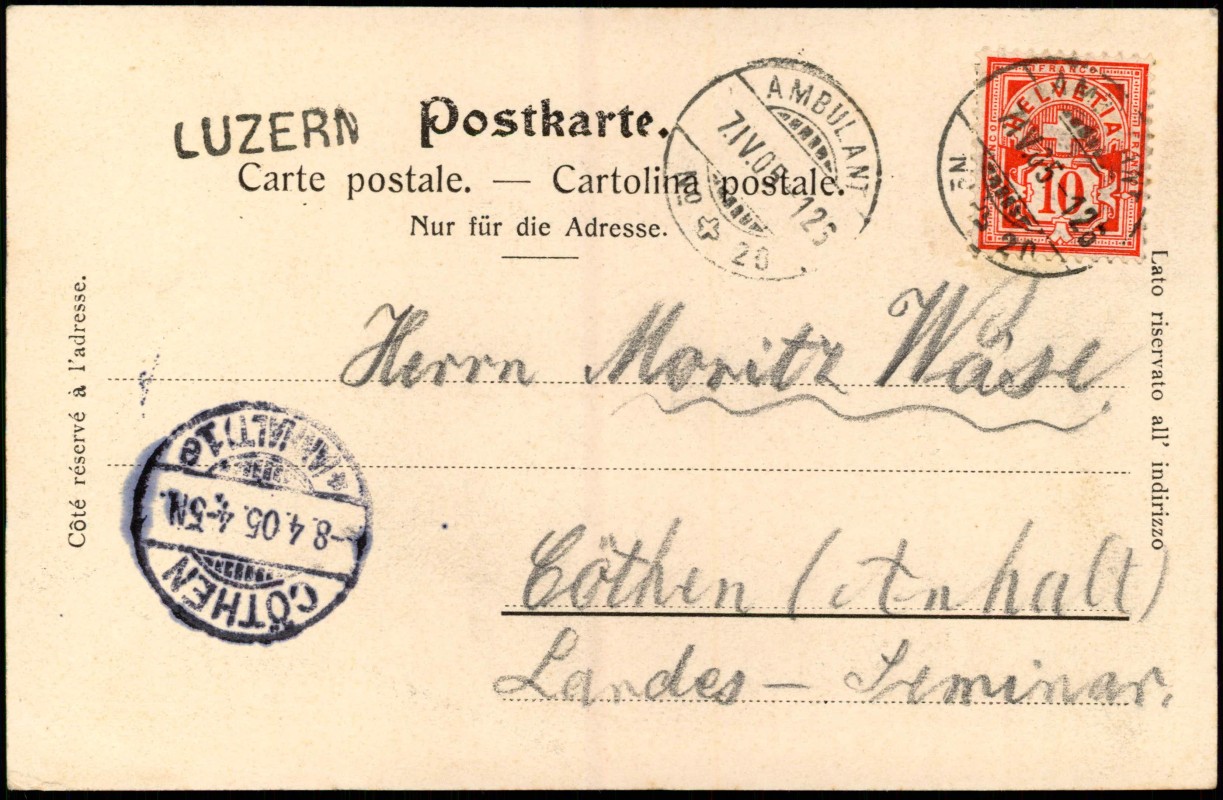 LUZERN
Postkarte.
Carte postale. — Cartolina postale.
Nur für die Adresse.
AMBULANT
7.IV.05 - 126
No 20
FRANCO
HELVETIA
10
Côté réservé à l'adresse.
Lato riservato all' indirizzo
Herrn Moritz Wäse
Cöthen (Anhalt)
Landes - Seminar.
CÖTHEN
8.4.05. 4-5N.